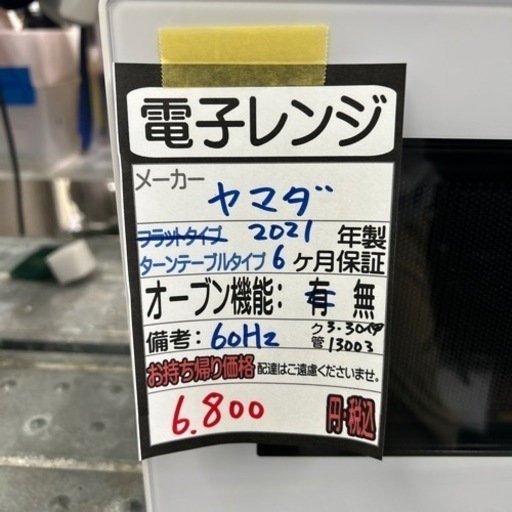 電子レンジ
メーカー
ヤマダ
フラットタイプ 2021 年製
ターンテーブルタイプ 6 ヶ月保証
オーブン機能: 有 無
備考: 60Hz
管 13003
お持ち帰り価格 配達はご遠慮くださいませ。
6.800 円・税込